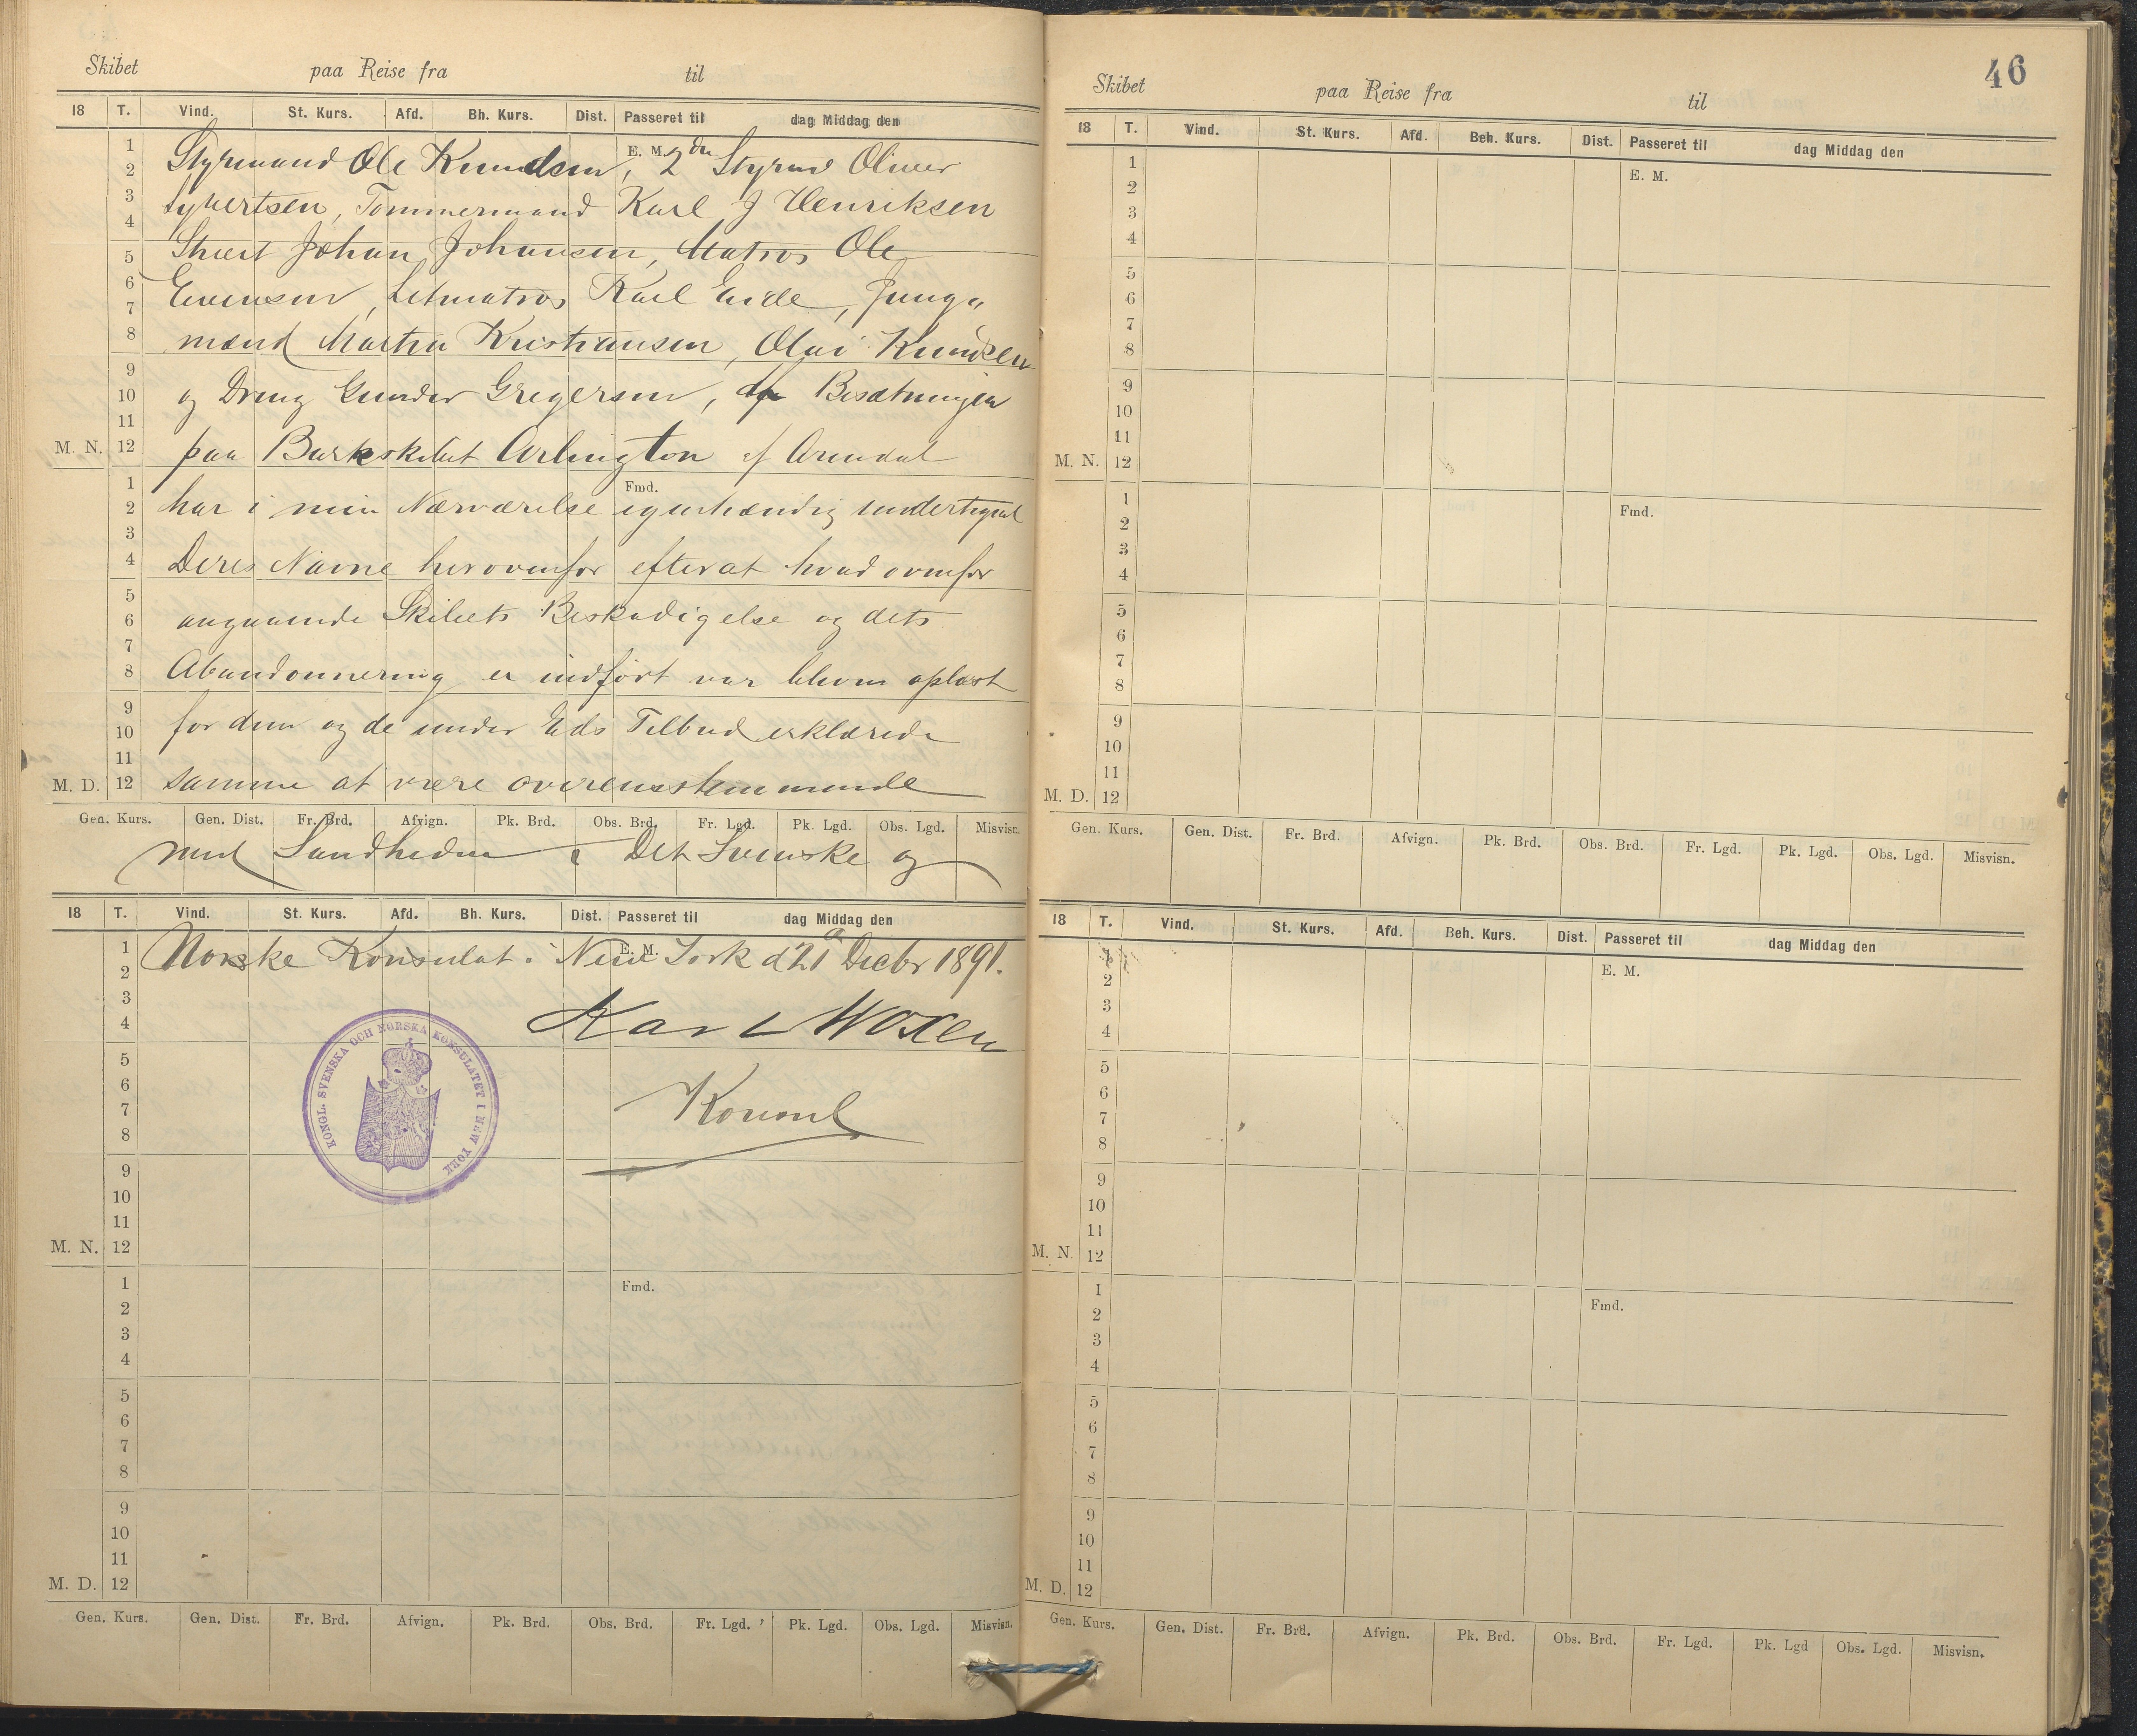 Skibet paa Reise fra til
18 T. Vind. St. Kurs. Afd. Bh. Kurs. Dist. Passeret til dag Middag den
E. M.
Styrmand Ole Knudsen, 2den Styrmd Oliver
Syvertsen, Tømmermand Karl J Henriksen
Stuert Johan Johansen, Matros Ole
Evensen, Letmatros Karl Eide, Jung-
mænd Martin Kristiansen, Olai Knudsen
og Dreng Gunder Gregersen, af Besætningen
M. N. paa Barkskibet Arlington af Arendal
Fmd.
har i min Nærværelse egenhændig undertegnet
Deres Navne herovenfor efterat hvad ovenfor
angaaende Skibets Beskadigelse og dets
Abandonnering er indført var bleven oplæst
for dem og de under Eds Tilbud erklærede
M. D. samme at være overensstemmende
Gen. Kurs. Gen. Dist. Fr. Brd. Afvign. Pk. Brd. Obs. Brd. Fr. Lgd. Pk. Lgd. Obs. Lgd. Misvisn.
med Sandheden Det Svenske og
18 T. Vind. St. Kurs. Afd. Bh. Kurs. Dist. Passeret til dag Middag den
E. M.
Norske Konsulat i New York d 21 Decbr 1891.
Karl Woxen
Konsul
KONGL. SVENSKA OCH NORSKA KONSULATET I NEW YORK
1
2
3
4
5
6
7
8
9
10
11
M. N. 12
1 Fmd.
2
3
4
5
6
7
8
9
10
11
M. D. 12
Gen. Kurs. Gen. Dist. Fr. Brd. Afvign. Pk. Brd. Obs. Brd. Fr. Lgd. Pk. Lgd. Obs. Lgd. Misvisn.
46
Skibet paa Reise fra til
18 T. Vind. St. Kurs. Afd. Beh. Kurs. Dist. Passeret til dag Middag den
1 E. M.
2
3
4
5
6
7
8
9
10
11
M. N. 12
1 Fmd.
2
3
4
5
6
7
8
9
10
11
M. D. 12
Gen. Kurs. Gen. Dist. Fr. Brd. Afvign. Pk. Brd. Obs. Brd. Fr. Lgd. Pk. Lgd. Obs. Lgd. Misvisn.
18 T. Vind. St. Kurs. Afd. Beh. Kurs. Dist. Passeret til dag Middag den
1 E. M.
2
3
4
5
6
7
8
9
10
11
M. N. 12
1 Fmd.
2
3
4
5
6
7
8
9
10
11
M. D. 12
Gen. Kurs. Gen. Dist. Fr. Brd. Afvign. Pk. Brd. Obs. Brd. Fr. Lgd. Pk. Lgd Obs. Lgd. Misvisn.